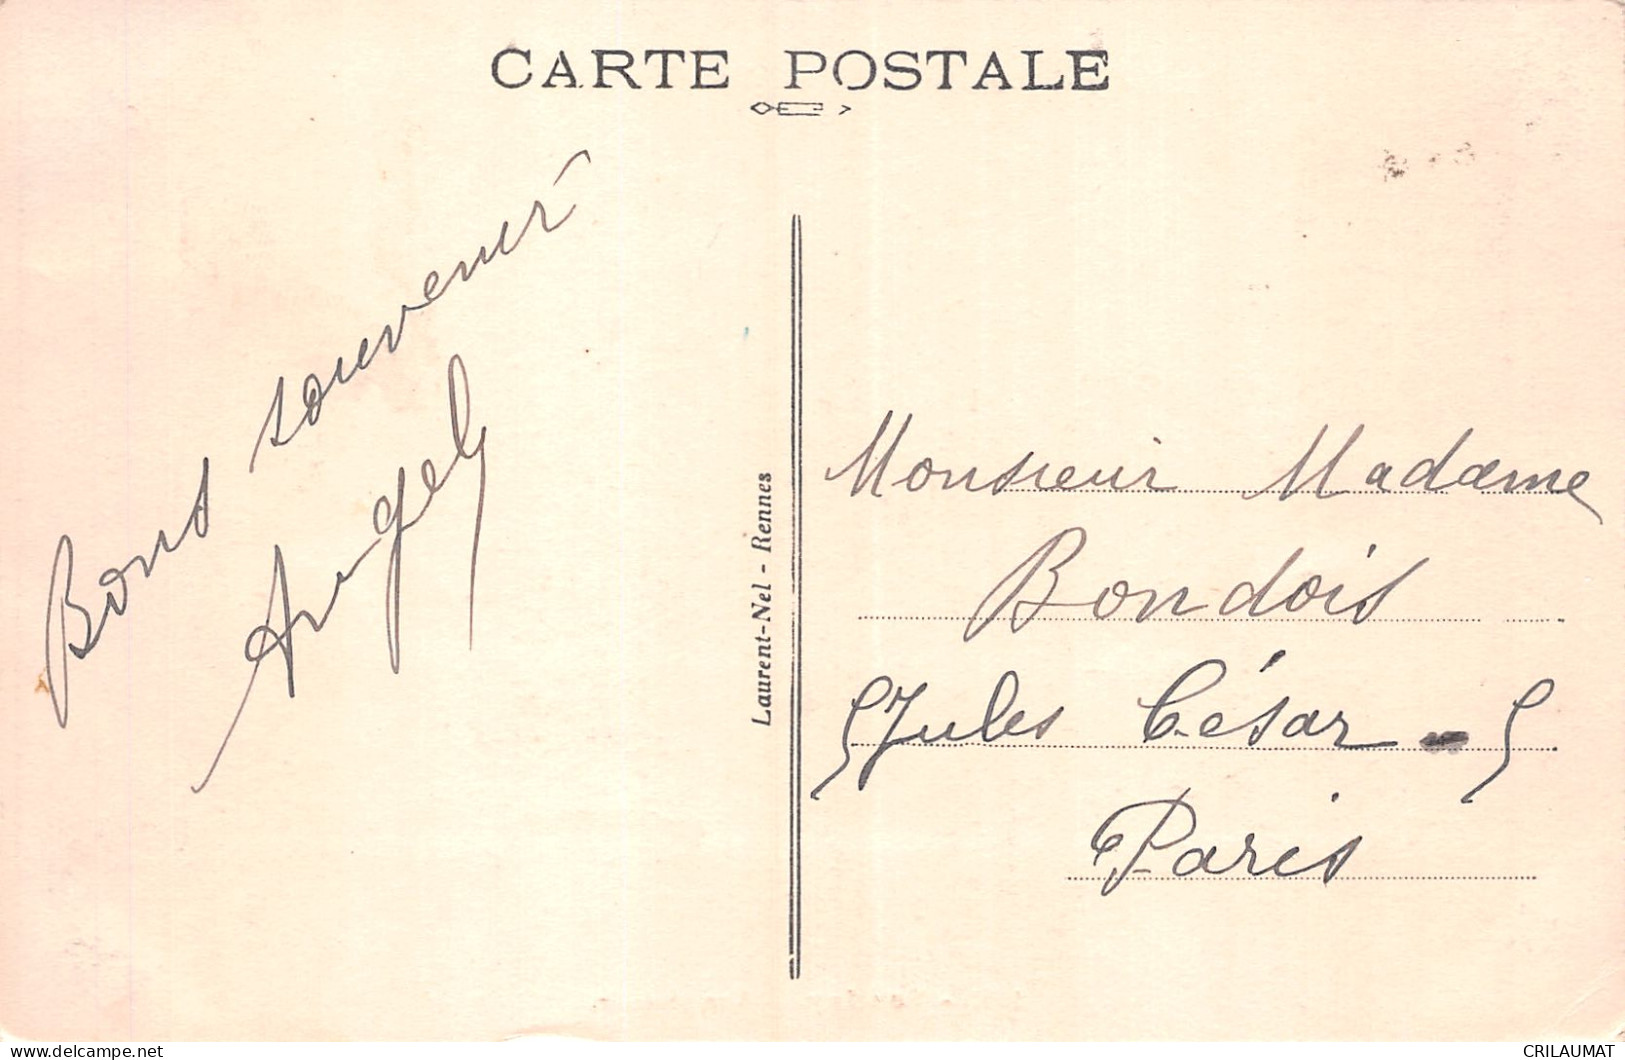 CARTE POSTALE
Bons souvenir
Angel
Laurent-Nel - Rennes
Monsieur Madame
Bondois
5 Jules César - 5
Paris
delcampe.net
CRILAUMAT